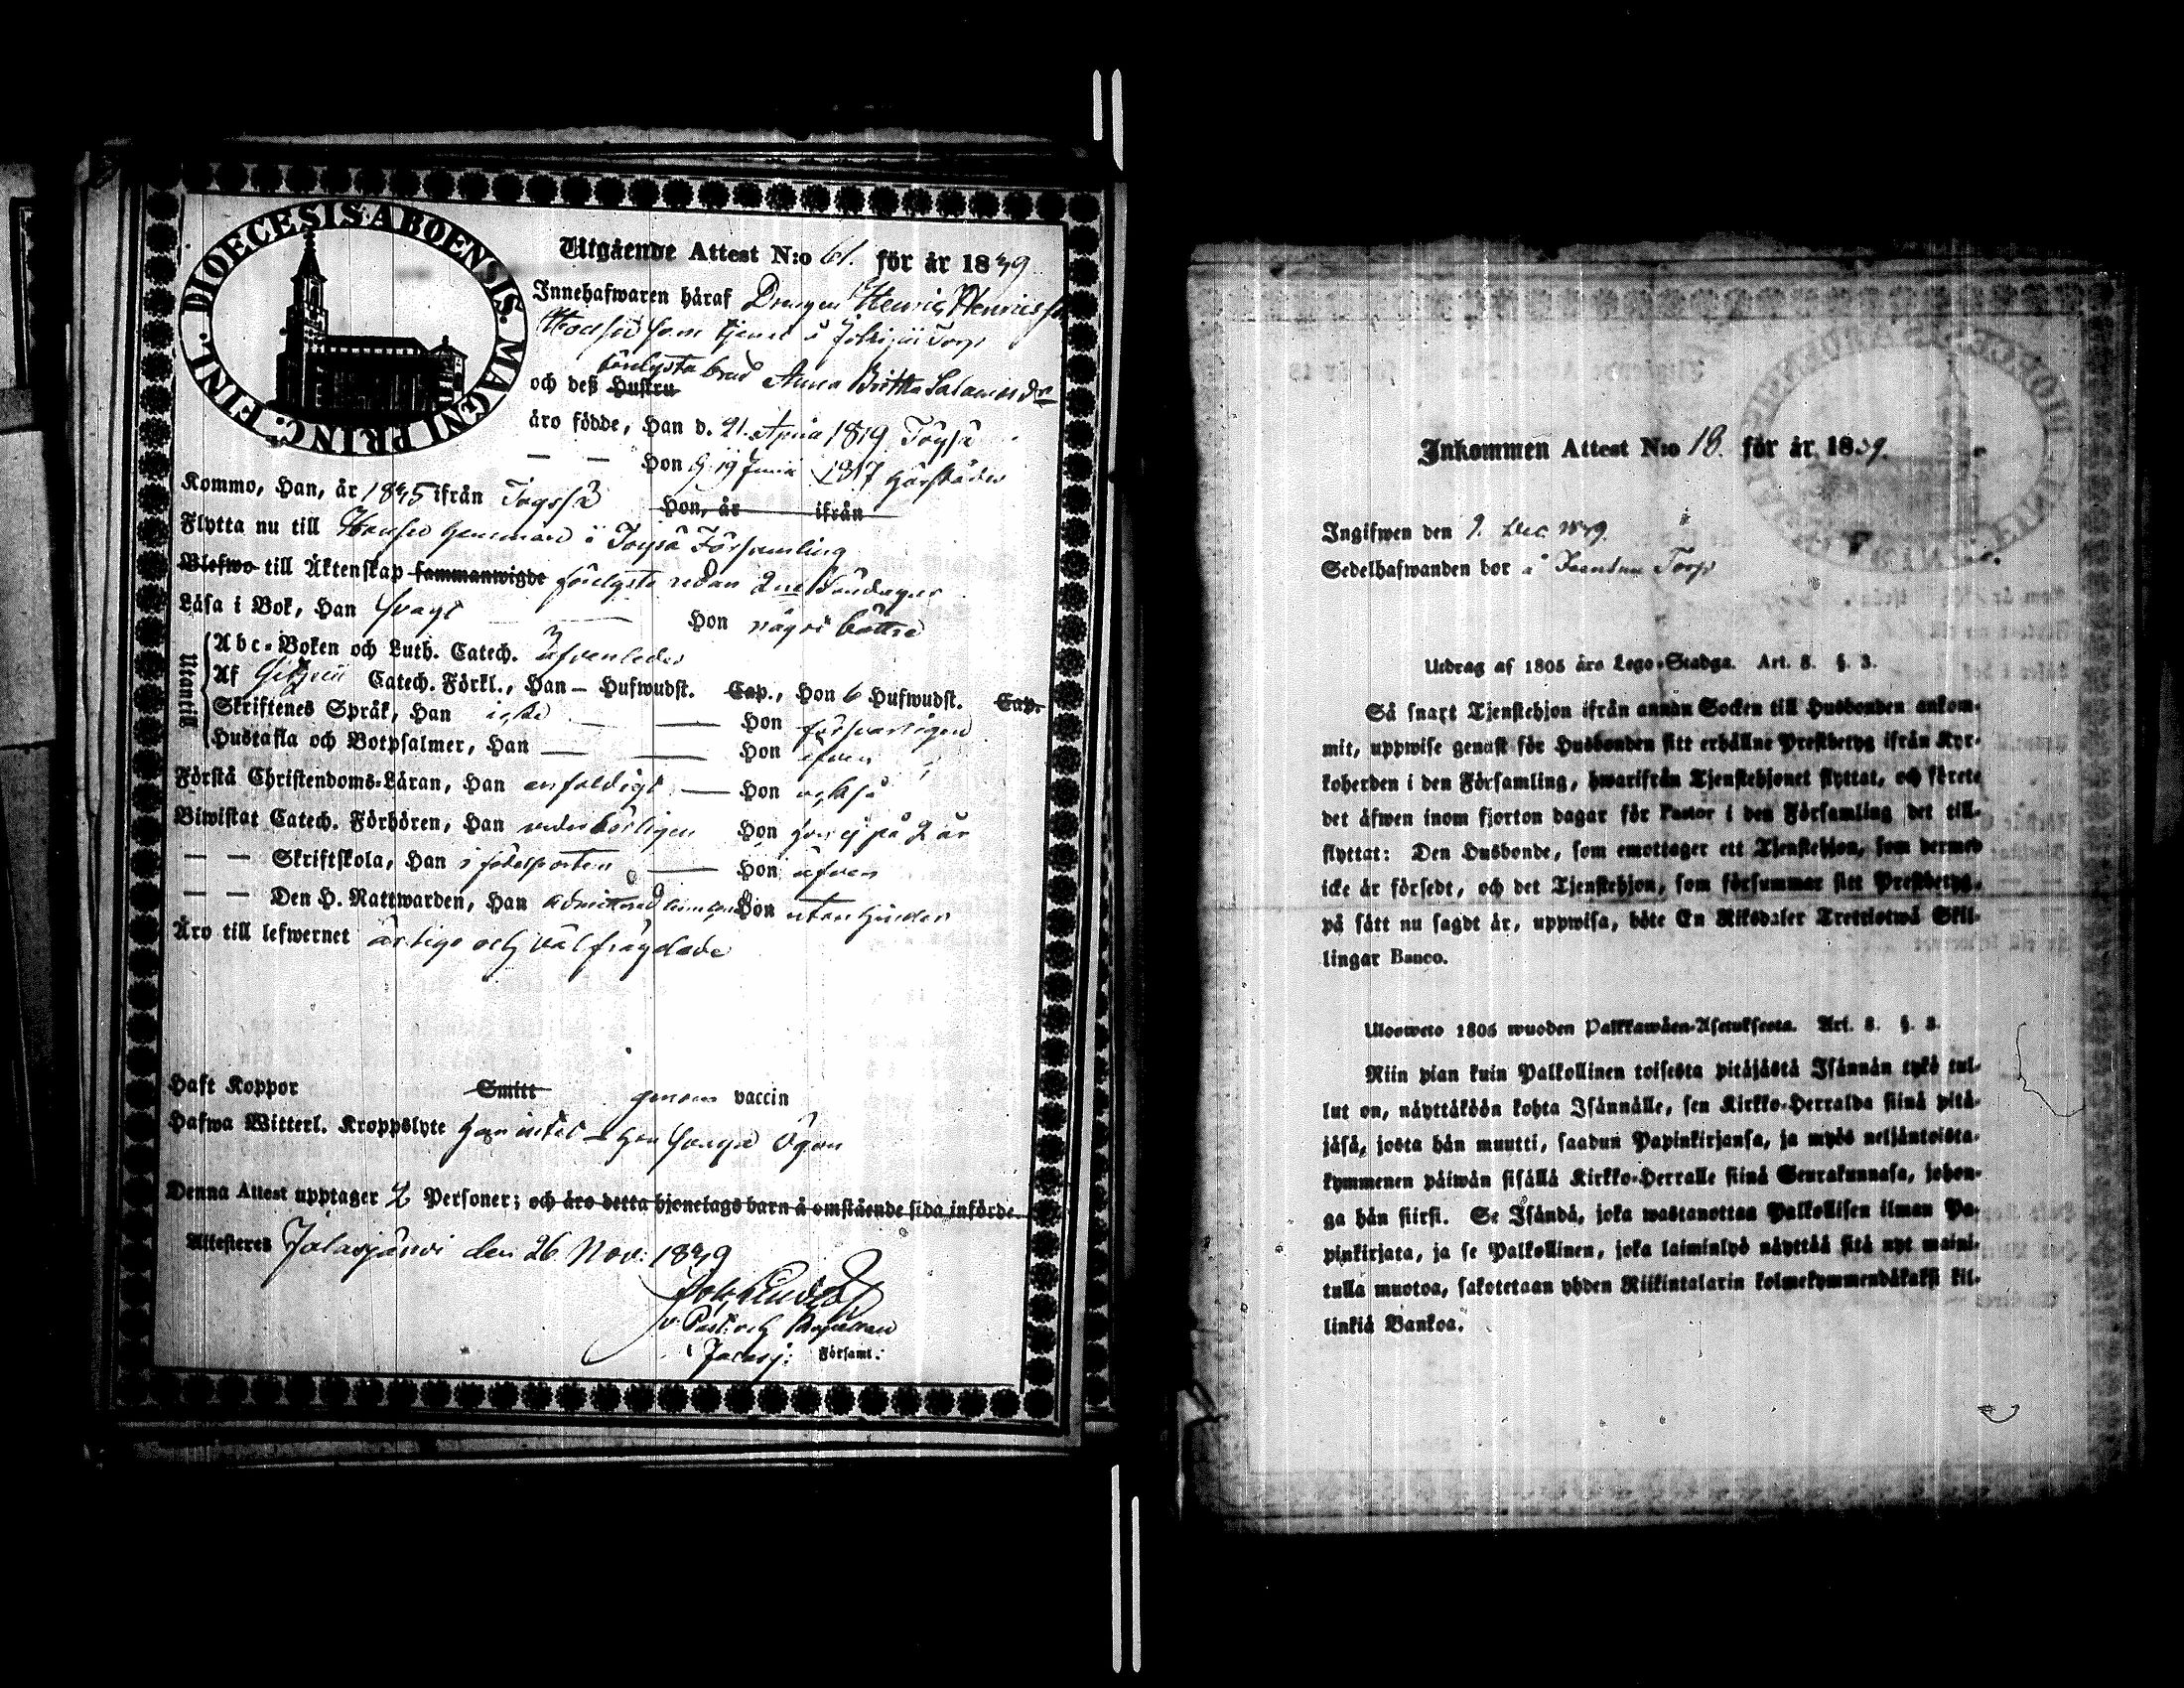 DIOECESIS ABOENSIS. MAGNI PRINC. FINL.
Utgående Attest N:o 61. för år 1839
Innehafwaren håraf Drengen Henric Henrics
som tjenat å Torp
förlysta brud
och deß Hustru Anna Britta Salomonsdr
åro födde, Han d. 21 April 1819 Töysä
— — Hon d 19 Junii 1817 härstädes
Kommo, Han, år 1835 ifrån Töysä Hon, år ifrån
Flytta nu till hemman i Töysä Församling
Blefwo till Åktenskap sammanwigde förlyste redan 2ne Söndagar
Låsa i Bok, Han svagt Hon något bättre
Utantill
Abc-Boken och Luth. Catech. äfvenledes
Af Catech. Förkl., Han — Hufwudst. Cap., Hon 6 Hufwudst. Cap.
Skriftenes Språk, Han icke — — Hon försvarligen
Hustafla och Botpsalmer, Han — — Hon äfven
Förstå Christendoms-Låran, Han enfaldigt — Hon också
Biwistat Catech. Förhören, Han vederbörligen Hon har ej på 2 år
— — Skriftskola, Han i — Hon äfven
— — Den H. Nattwarden, Han Hon utan hinder
Åro till lefwernet ärlige och välfrägdade
Haft Koppor Smitt genom vaccin
Hafwa Witterl. Kroppslyte han intet – hon svaga ögon
Denna Attest upptager 2 Personer; och åro detta hjonelags barn å omstående sida införde.
Attesteres Jalasjärvi den 26 Nov: 1839
v. Past: och
i Jalasj: Församl.
Inkommen Attest N:o 18. för år 1839.
Ingifwen den 9. Dec 1839
Sedelhafwanden bor å Torp
Utdrag af 1805 års Lego-Stadga. Art. 8. §. 3.
Så snart Tjenstehjon ifrån annan Socken till Husbonden ankom-
mit, uppwise genast för Husbonden sitt erhållne Prestbetyg ifrån Kyr-
koherden i den Församling, hwarifrån Tjenstehjonet flyttat, och förete
det åfwen inom fjorton dagar för Pastor i den Församling det till-
flyttat: Den Husbonde, som emottager ett Tjenstehjon, som dermed
icke år försedt, och det Tjenstehjon, som försummar sitt Prestbetyg,
på sått nu sagdt år, uppwisa, böte En Riksdaler Trettiotwå Skil-
lingar Banco.
Uloswero 1805 wuoden Palkkawåen-Asetuksesta. Art. 8. §. 3.
Niin pian kuin Palkollinen toisesta pitåjåstå Isånnån tykö tul-
lut on, nåyttåköön kohta Isånnålle, sen Kirkko-Herralda siinå pitå-
jåså, josta hån muutti, saadun Papinkirjansa, ja myös neljåntoista-
kymmenen påiwån sisållå Kirkko-Herralle siinå Seurakunnasa, johon-
ga hån siirsi. Se Isåndå, joka wastanottaa Palkollisen ilman Pa-
pinkirjata, ja se Palkollinen, joka laiminlyö nåyttåå sitå nyt maini-
tulla muotoa, sakotetaan yhden Riikintalarin kolmekymmendåkaksi kil-
linkiå Bankoa.